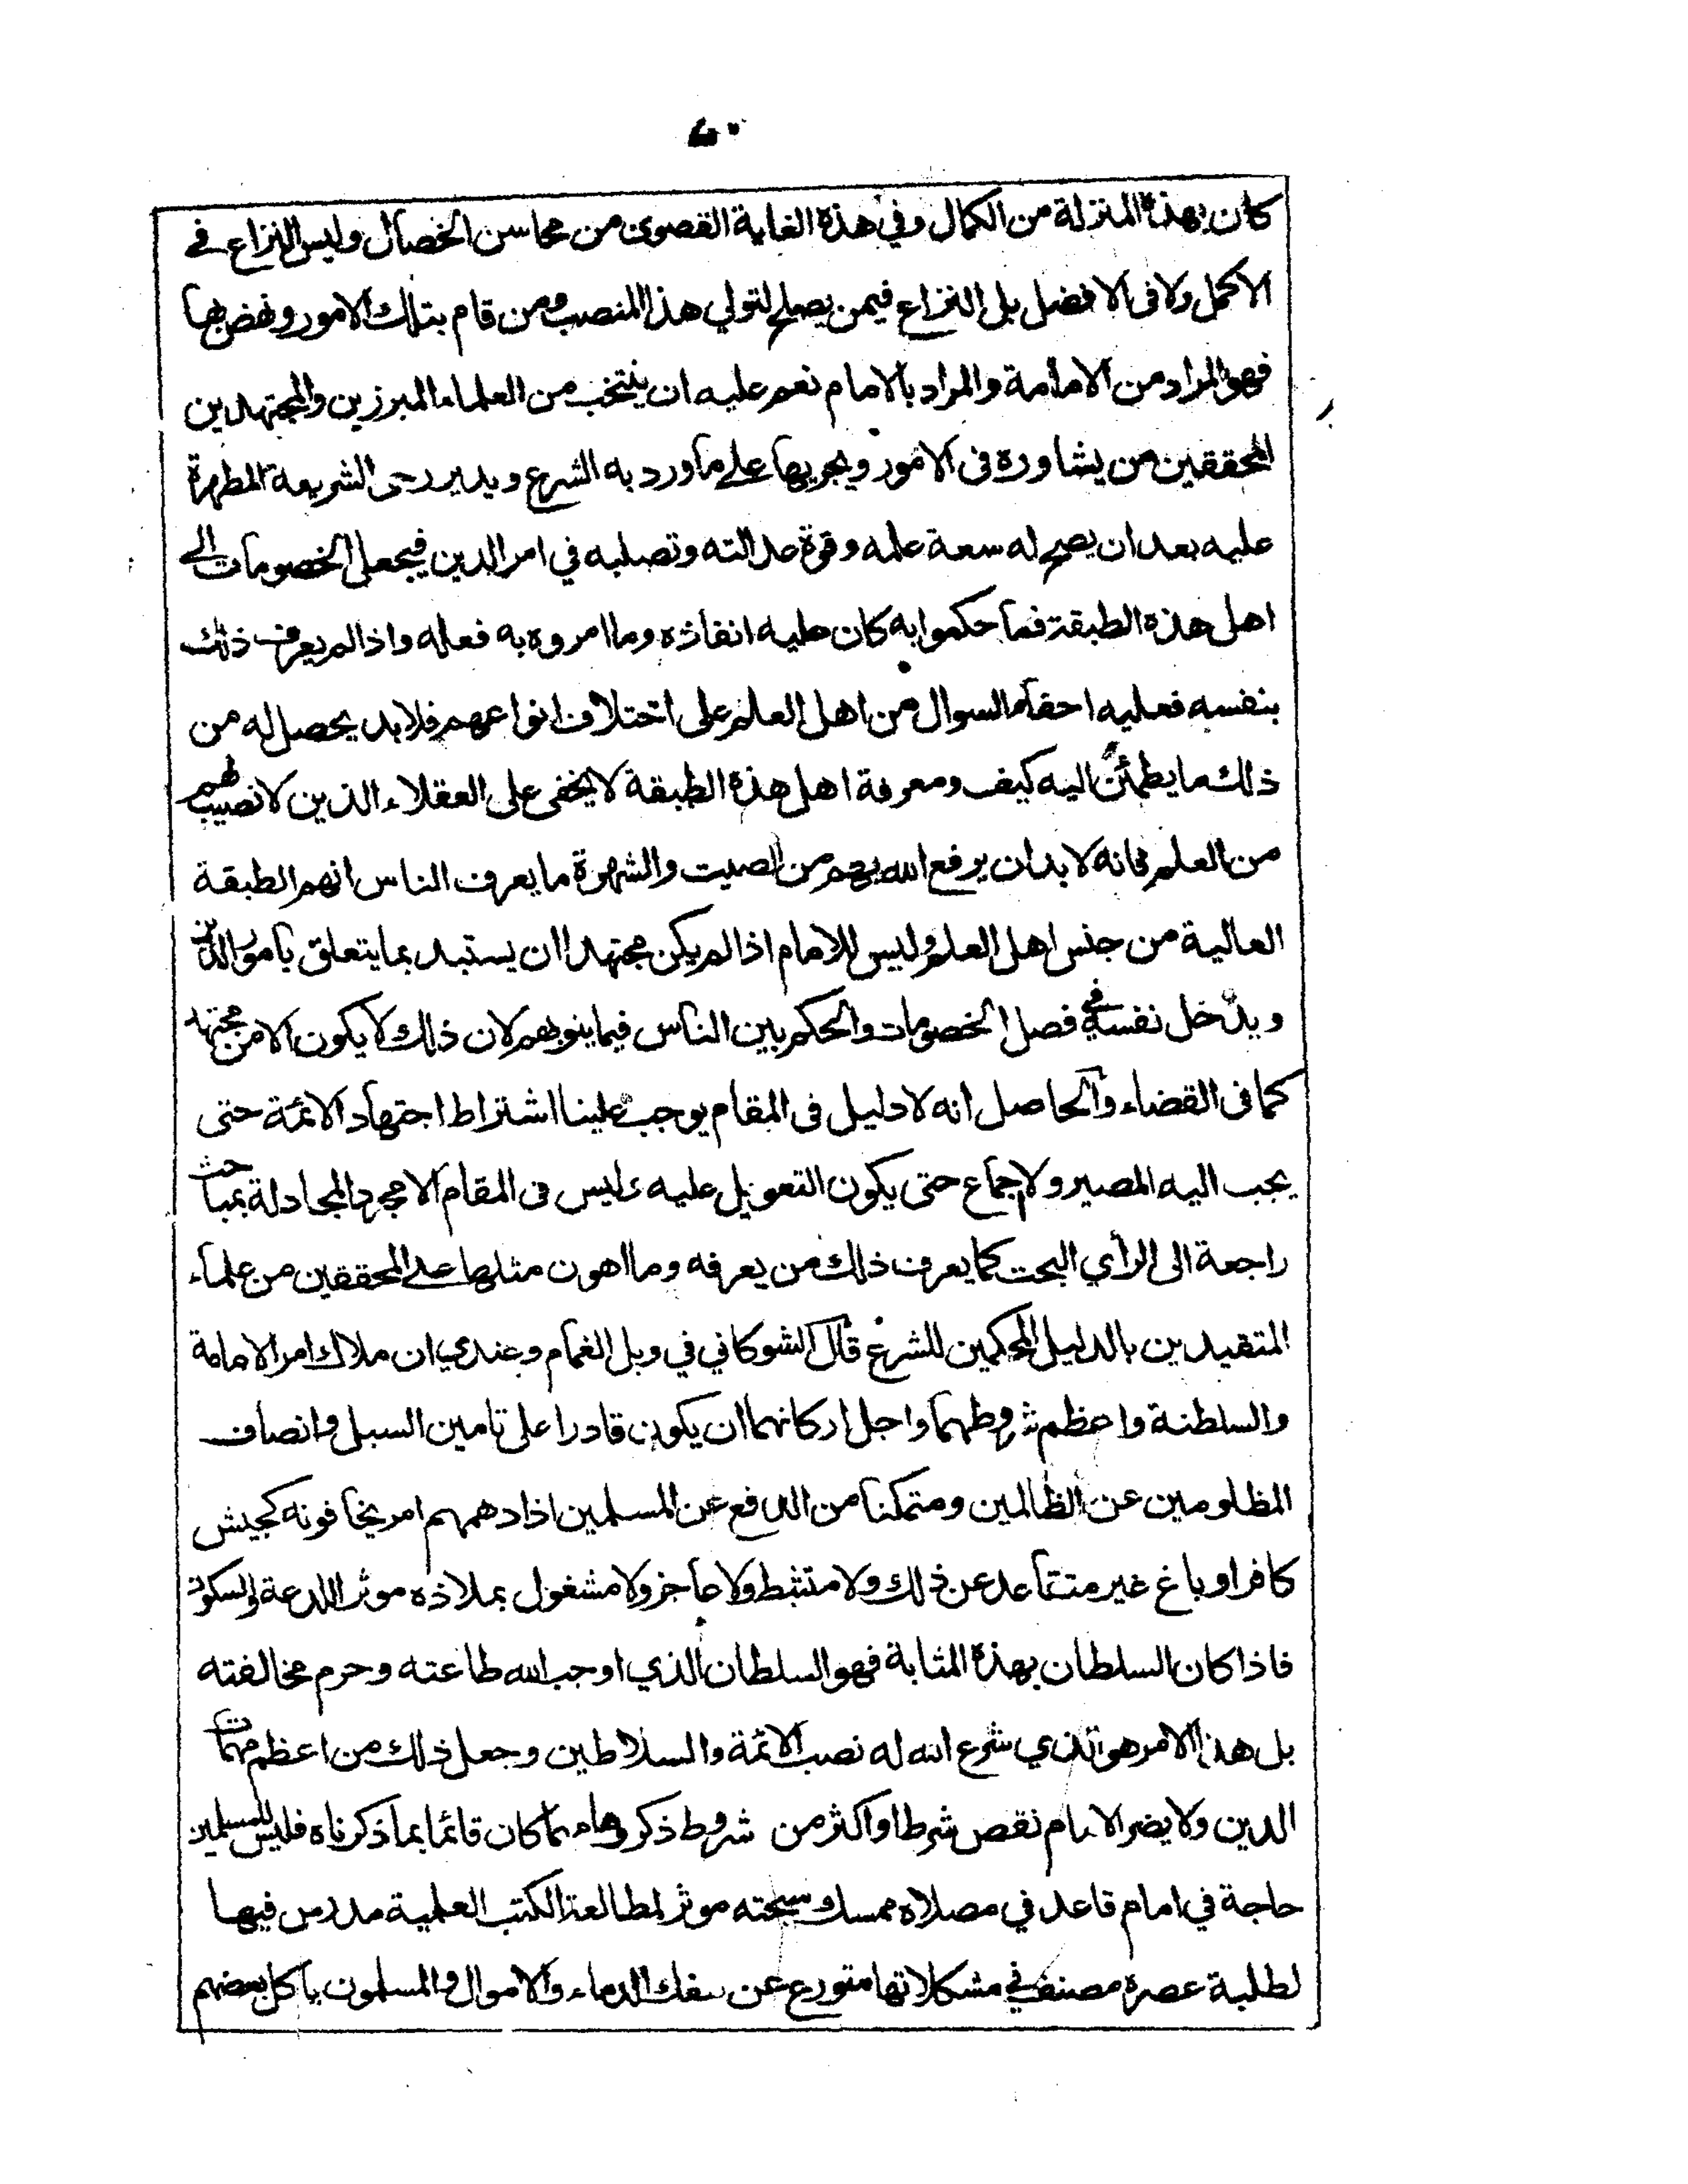 ٤٠
كان بهذه المنزلة من الكمال وفي هذه الغاية القصوى من محاسن الخصال وليس النزاع في
الاكمل ولا فى الافضل بل النزاع فيمن يصلح لتولي هذا المنصب ومن قام بتلك الامور ونهض بها
فهو المراد من الامامة والمراد بالامام نعم عليه ان ينتخب من العلماء المبرزين والمجتهدين
المحققين من يشاوره فى الامور ويجريها على ما ورد به الشرع ويدير رحى الشريعة المطهرة
عليه بعد ان يصح له سعة علمه وقوة عدالته وتصلبه في امر الدين فيجعل الخصومات الى
اهل هذه الطبقة فما حكموا به كان عليه انفاذه وما امروه به فعله واذا لم يعرف ذلك
بنفسه فعليه احفاء السوال من اهل العلم على اختلاف انواعهم فلا بد يحصل له من
ذلك ما يطمئن اليه كيف ومعرفة اهل هذه الطبقة لا يخفى على العقلاء الذين لا نصيب لهم
من العلم فانه لا بد ان يرفع الله بهم من الصيت والشهرة ما يعرف الناس انهم الطبقة
العالية من جنس اهل العلم وليس للامام اذا لم يكن مجتهدا ان يستبد بما يتعلق بامور الدين
ويدخل نفسه في فصل الخصومات والحكم بين الناس فيما ينوبهم لان ذلك لا يكون الا من مجتهد
كما فى القضاء والحاصل انه لا دليل فى المقام يوجب علينا اشتراط اجتهاد الائمة حتى
يجب اليه المصير ولا اجماع حتى يكون التعويل عليه وليس فى المقام الا مجرد المجادلة بمباحث
راجعة الى الرأي البحت كما يعرف ذلك من يعرفه وما اهون مثلها على المحققين من علماء
المتقيدين بالدليل المحكمين للشرع قال الشوكاني في وبل الغمام وعندي ان ملاك امر الامامة
والسلطنة واعظم شروطهما واجل اركانهما ان يكون قادرا على تامين السبل وانصاف
المظلومين عن الظالمين ومتمكنا من الدفع عن المسلمين اذا دهمهم امر يخافونه كجيش
كافر او باغ غير متقاعد عن ذلك ولا متثبط ولا عاجز ولا مشغول بملاذه موثر اللدعة والسكون
فاذا كان السلطان بهذه المثابة فهو السلطان الذي اوجب الله طاعته وحرم مخالفته
بل هذا الامر هو الذي شرع الله له نصب الائمة والسلاطين وجعل ذلك من اعظم مهمات
الدين ولا يضر الامام نقص شرط او اكثر من شروط ذكروها مهما كان قائما بما ذكرناه فليس للمسلمين
حاجة في امام قاعد في مصلاه ممسك سبحته موثر لمطالعة الكتب العلمية مدرس فيها
لطلبة عصره مصنف في مشكلاتها متورع عن سفك الدماء والاموال والمسلمون يأكل بعضهم